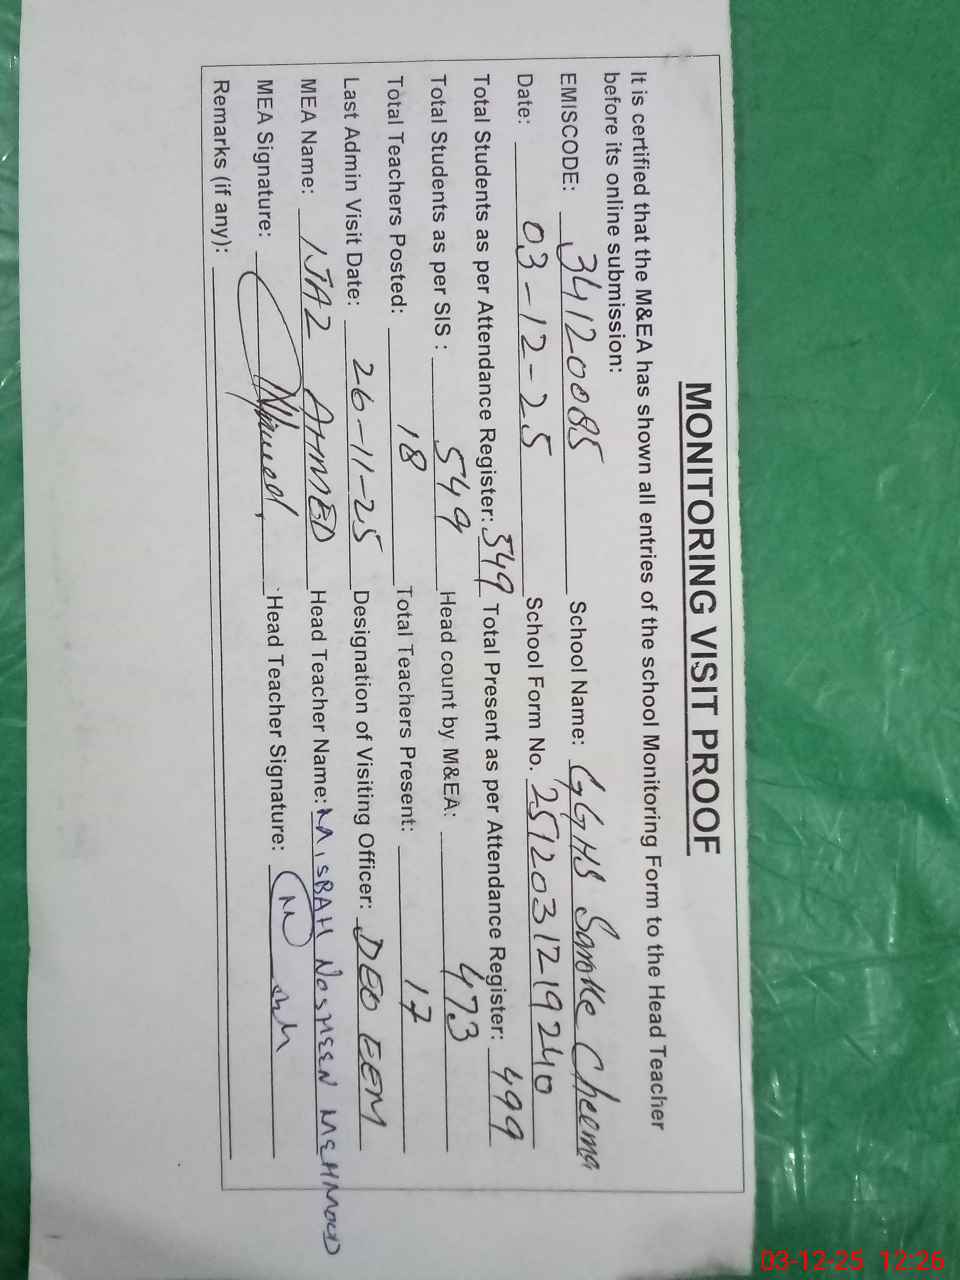 MONITORING VISIT PROOF
It is certified that the M&EA has shown all entries of the school Monitoring Form to the Head Teacher
before its online submission:
EMISCODE: 34120085 School Name: GGHS Saroke Cheema
Date: 03-12-25 School Form No. 2512031219240
Total Students as per Attendance Register: 549 Total Present as per Attendance Register: 499
Total Students as per SIS : 549 Head count by M&EA: 473
Total Teachers Posted: 18 Total Teachers Present: 17
Last Admin Visit Date: 26-11-25 Designation of Visiting Officer: DEO EEM
MEA Name: IJAZ AHMED Head Teacher Name: MISBAH NOSHEEN MEHMOOD
MEA Signature: Head Teacher Signature:
Remarks (if any):
03-12-25 12:26